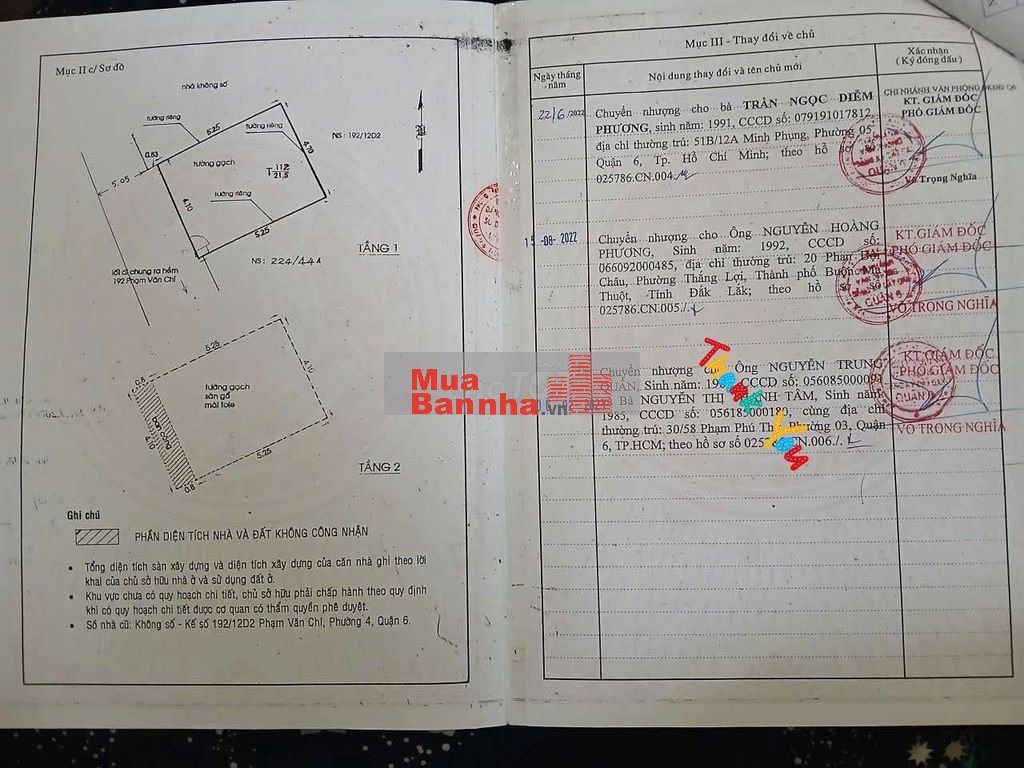 Mục II c/ Sơ đồ
nhà không số
tường riêng
5.25
tường riêng
NS: 192/12D2
4.10
0.83
5.05
tường gạch
T 112
21,5
tường riêng
4.10
5.25
TẦNG 1
NS: 224/44A
lối đi chung ra hẻm
192 Phạm Văn Chí
5.25
4.10
0.8
tường gạch
sàn gỗ
mái tole
4.10
5.25
0.8
TẦNG 2
Mua
Bannha.vn
Ghi chú
PHẦN DIỆN TÍCH NHÀ VÀ ĐẤT KHÔNG CÔNG NHẬN
• Tổng diện tích sàn xây dựng và diện tích xây dựng của căn nhà ghi theo lời
khai của chủ sở hữu nhà ở và sử dụng đất ở.
• Khu vực chưa có quy hoạch chi tiết, chủ sở hữu phải chấp hành theo quy định
khi có quy hoạch chi tiết được cơ quan có thẩm quyền phê duyệt.
• Số nhà cũ: Không số - Kế số 192/12D2 Phạm Văn Chí, Phường 4, Quận 6.
Mục III - Thay đổi về chủ
Ngày tháng
năm
Nội dung thay đổi và tên chủ mới
Xác nhận
(Ký đóng dấu)
22/6/2022
Chuyển nhượng cho bà TRẦN NGỌC DIỄM
PHƯƠNG, sinh năm: 1991, CCCD số: 079191017812,
địa chỉ thường trú: 51B/12A Minh Phụng, Phường 05,
Quận 6, Tp. Hồ Chí Minh; theo hồ sơ
025786.CN.004
CHI NHÁNH VĂN PHÒNG ĐKĐĐ Q6
KT. GIÁM ĐỐC
PHÓ GIÁM ĐỐC
Võ Trọng Nghĩa
15-08-2022
Chuyển nhượng cho Ông NGUYỄN HOÀNG
PHƯƠNG, Sinh năm: 1992, CCCD số:
066092000485, địa chỉ thường trú: 20 Phan Bội
Châu, Phường Thắng Lợi, Thành phố Buôn Ma
Thuột, Tỉnh Đắk Lắk; theo hồ sơ số
025786.CN.005./.
KT.GIÁM ĐỐC
PHÓ GIÁM ĐỐC
QUẬN 6
VÕ TRỌNG NGHĨA
Chuyển nhượng Ông NGUYỄN TRUNG
QUÂN, Sinh năm: CCCD số:
Bà NGUYỄN THỊ TÂM, Sinh năm:
1985, CCCD số: 056185000180, cùng địa chỉ
thường trú: 30/58 Phạm Phú Phường 03, Quận
6, TP.HCM; theo hồ sơ số CN.006./.
KT.GIÁM ĐỐC
PHÓ GIÁM ĐỐC
QUẬN 6
VÕ TRỌNG NGHĨA